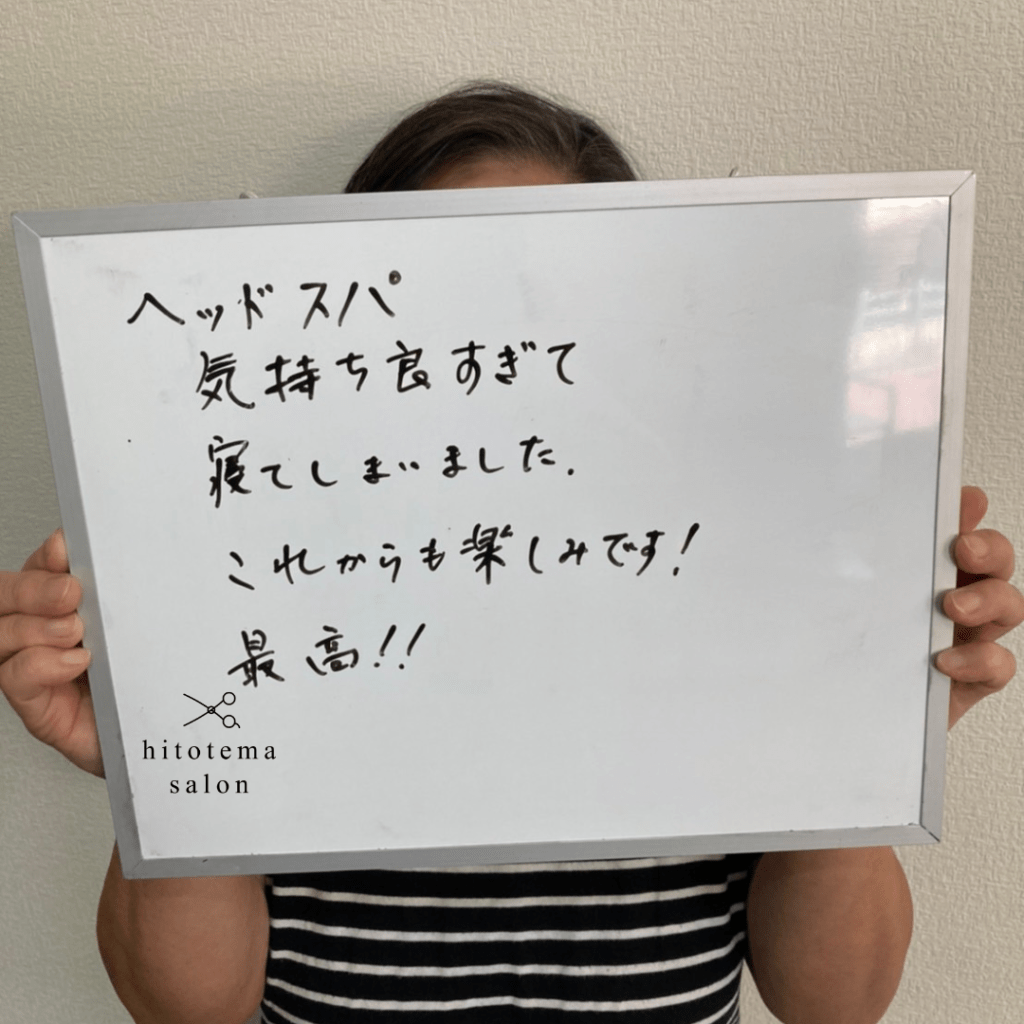 ヘッドスパ
気持ち良すぎて
寝てしまいました.
これからも楽しみです!
最高!!
hitotema
salon